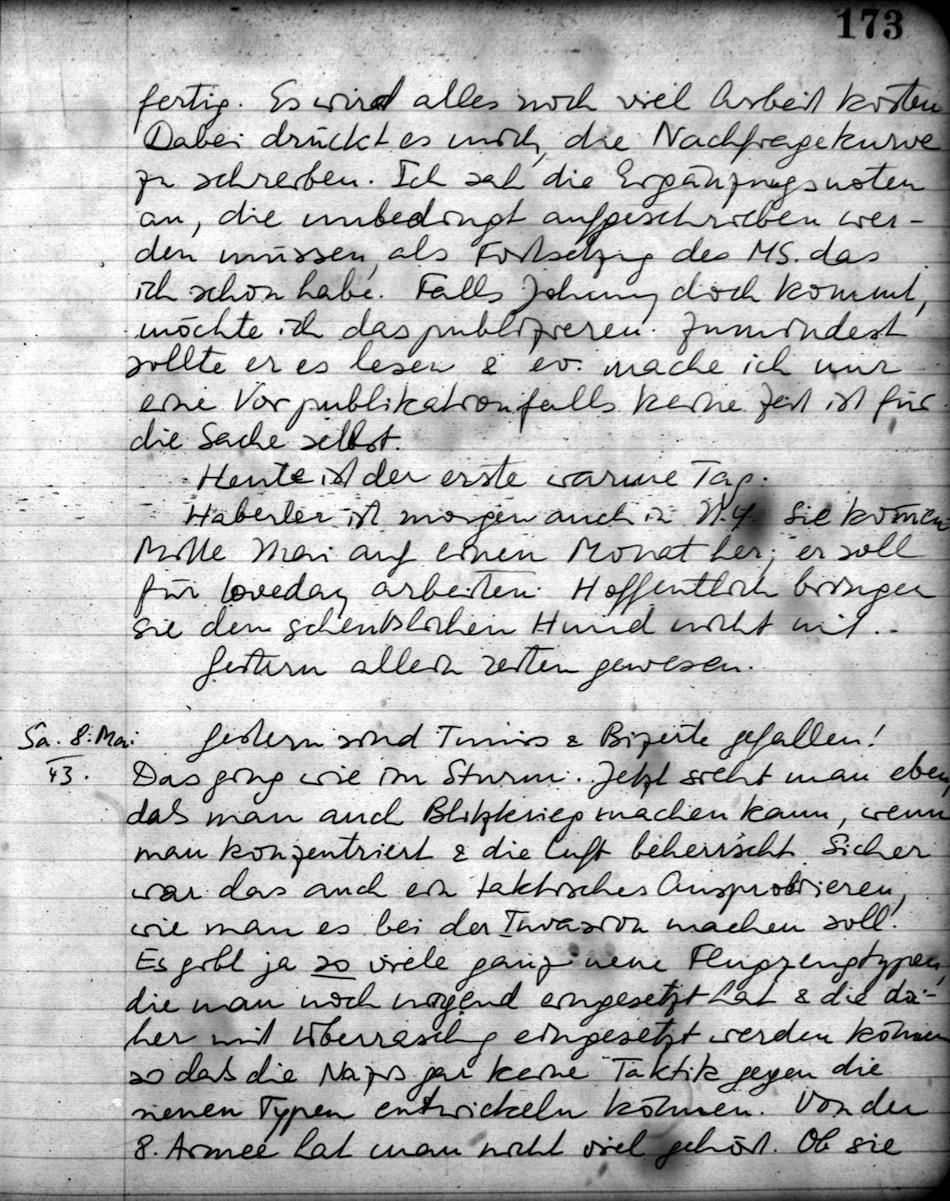 173
fertig. Es wird alles noch viel Arbeit kosten
Dabei drückt es mich, die Nachfragekurve
zu schreiben. Ich sah die Ergänzungsnoten
an, die unbedingt aufgeschrieben wer-
den müssen, als Fortsetzg des MS. das
ich schon habe. Falls Johnny doch kommt,
möchte ich das publizieren. Zumindest
sollte er es lesen & ev. mache ich nur
eine Vorpublikation falls keine Zeit ist für
die Sache selbst.
Heute ist der erste warme Tag.
Haberler ist morgen auch in N.Y. Sie kom̄en
Mitte Mai auf einen Monat her; er soll
für Loveday arbeiten. Hoffentlich bringen
sie den scheusslichen Hund nicht mit..
Gestern allein reiten gewesen.
Sa. 8. Mai
43.
Gestern sind Tunis & Bizerte gefallen!
Das ging wie im Sturm. Jetzt sieht man eben,
daß man auch Blitzkrieg machen kann, wenn
man konzentriert & die Luft beherrscht. Sicher
war das auch ein taktisches Ausprobieren,
wie man es bei der Invasion machen soll.
Es gibt ja so viele ganz neue Flugzeugtypen,
die man noch nirgend eingesetzt hat & die da-
her mit Überraschg eingesetzt werden können
so daß die Nazis gar keine Taktik gegen die
neuen Typen entwickeln können. Von der
8. Armee hat man nicht viel gehört. Ob sie